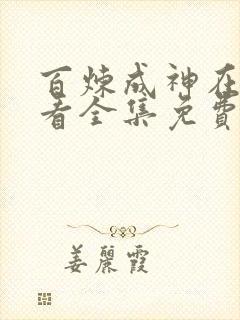 百炼成神在
看全集免費
姜麗霞